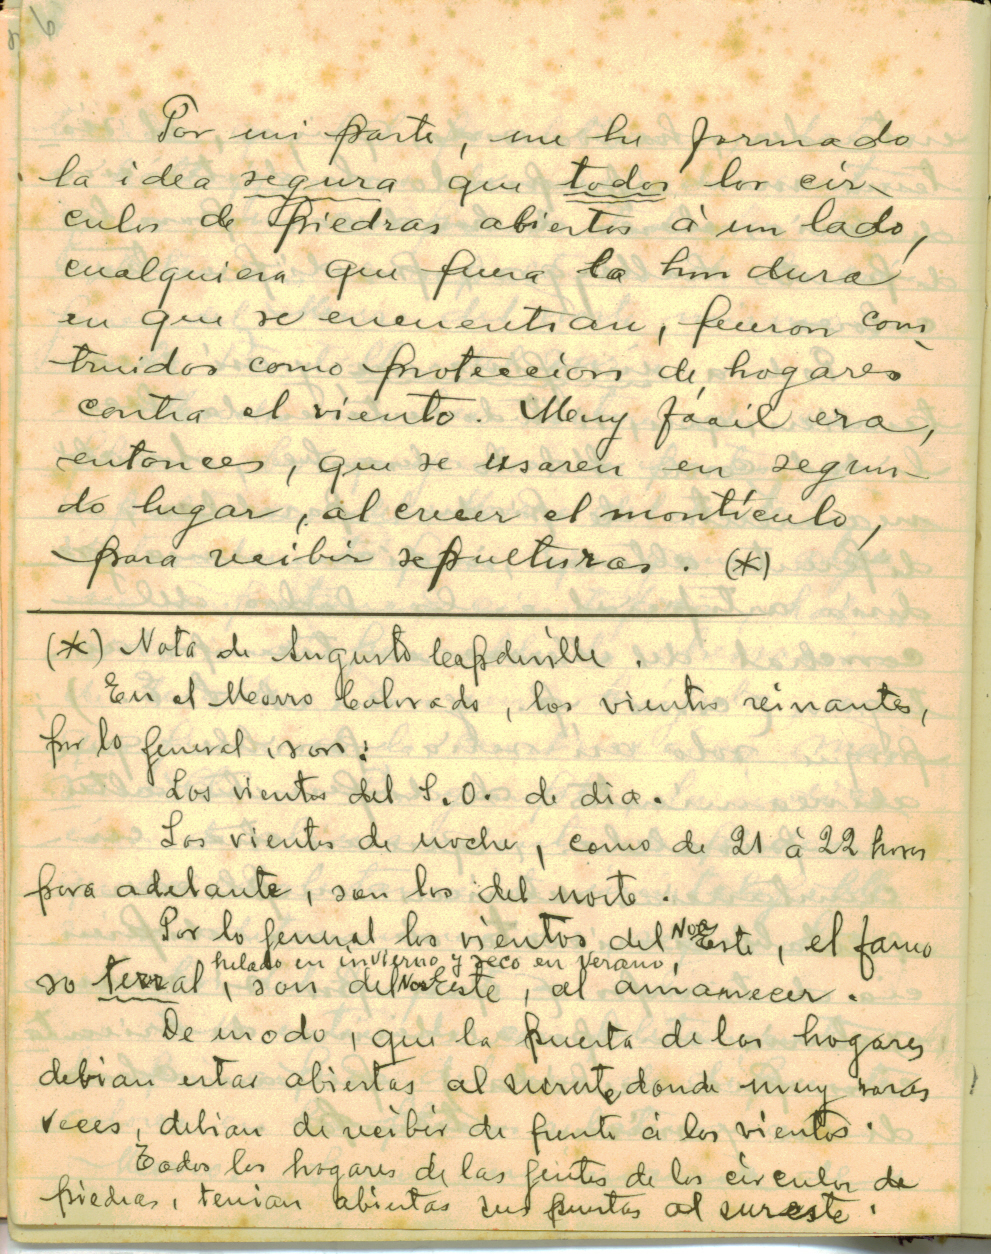 6
Por mi parte, me he formado
la idea segura que todos los cír-
culos de piedras abiertos à un lado,
cualquiera que fuera la hondura
en que se encuentran, fueron cons-
truidos como proteccion de hogares
contra el viento. Muy fácil era,
entonces, que se usaren en segun-
do lugar, al crecer el montículo,
para recibir sepulturas. (*)
(*) Nota de Augusto Capdeville.
En el Morro Colorado, los vientos reinantes,
por lo general, son:
Los vientos del S.O. de dia.
Los vientos de noche, como de 21 à 22 horas
para adelante, son los del norte.
Por lo general los vientos del Nor Este, el famo
helado en invierno y seco en verano,
so terral, son del Nor Este, al amanecer.
De modo, que la puerta de los hogares
debian estar abiertas al sureste donde muy raras
veces, debian de recibir de frente à los vientos.
Todos los hogares de las gentes de los círculos de
piedras, tenian abiertas sus puertas al sureste.